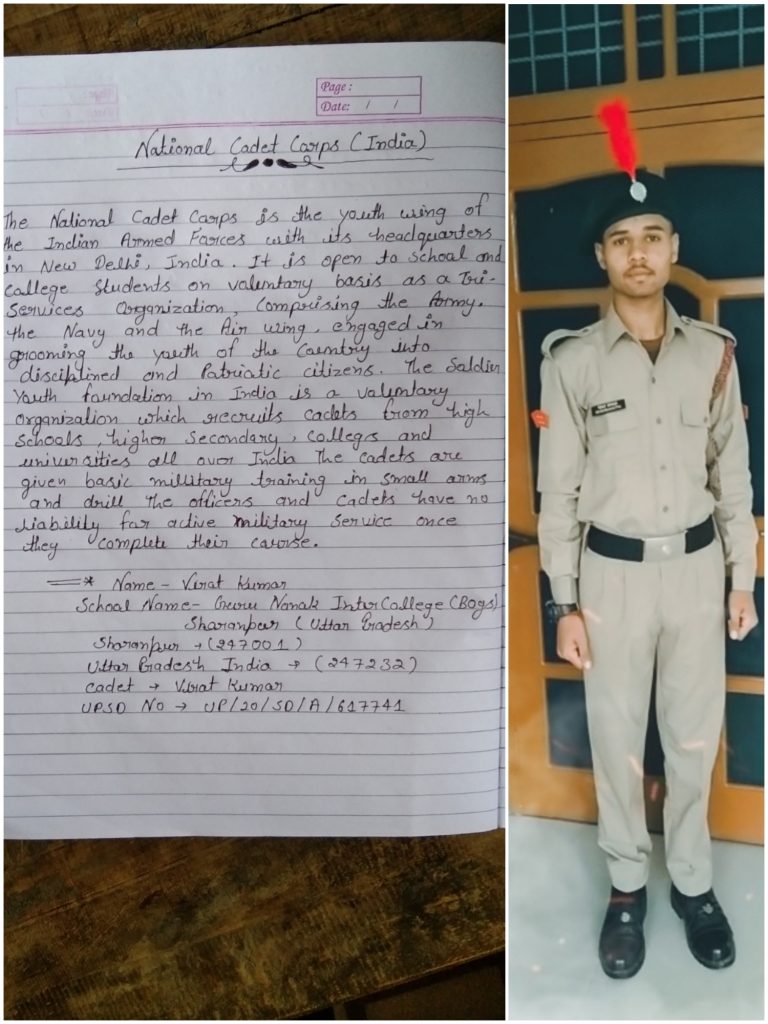 Page :
Date: / /
National Cadet Carps (India)
The National Cadet Carps is the youth wing of
the Indian Armed Farces with its headquarters
in New Delhi, India. It is open to school and
college students on valuntary basis as a Tri-
Services Organization, Comprising the Army.
the Navy and the Air wing, engaged in
grooming the youth of the Country into
disciplined and Patriatic citizens. The Saldier
Youth foundation in India is a valuntary
Organization which recruits cadets from high
Schools, higher Secondary, Colleges and
universities all over India The cadets are
given basic military training in small arms
and drill The officers and Cadets have no
liability far active military Service once
they complete their caurse.
* Name - Virat Kumar
School Name - Guru Nanak Inter College (Boys)
Sharanpur (Uttar Pradesh)
Sharanpur → (247001)
Uttar Pradesh India → (247232)
Cadet → Virat Kumar
UPSD No → UP/20/SD/A/617741